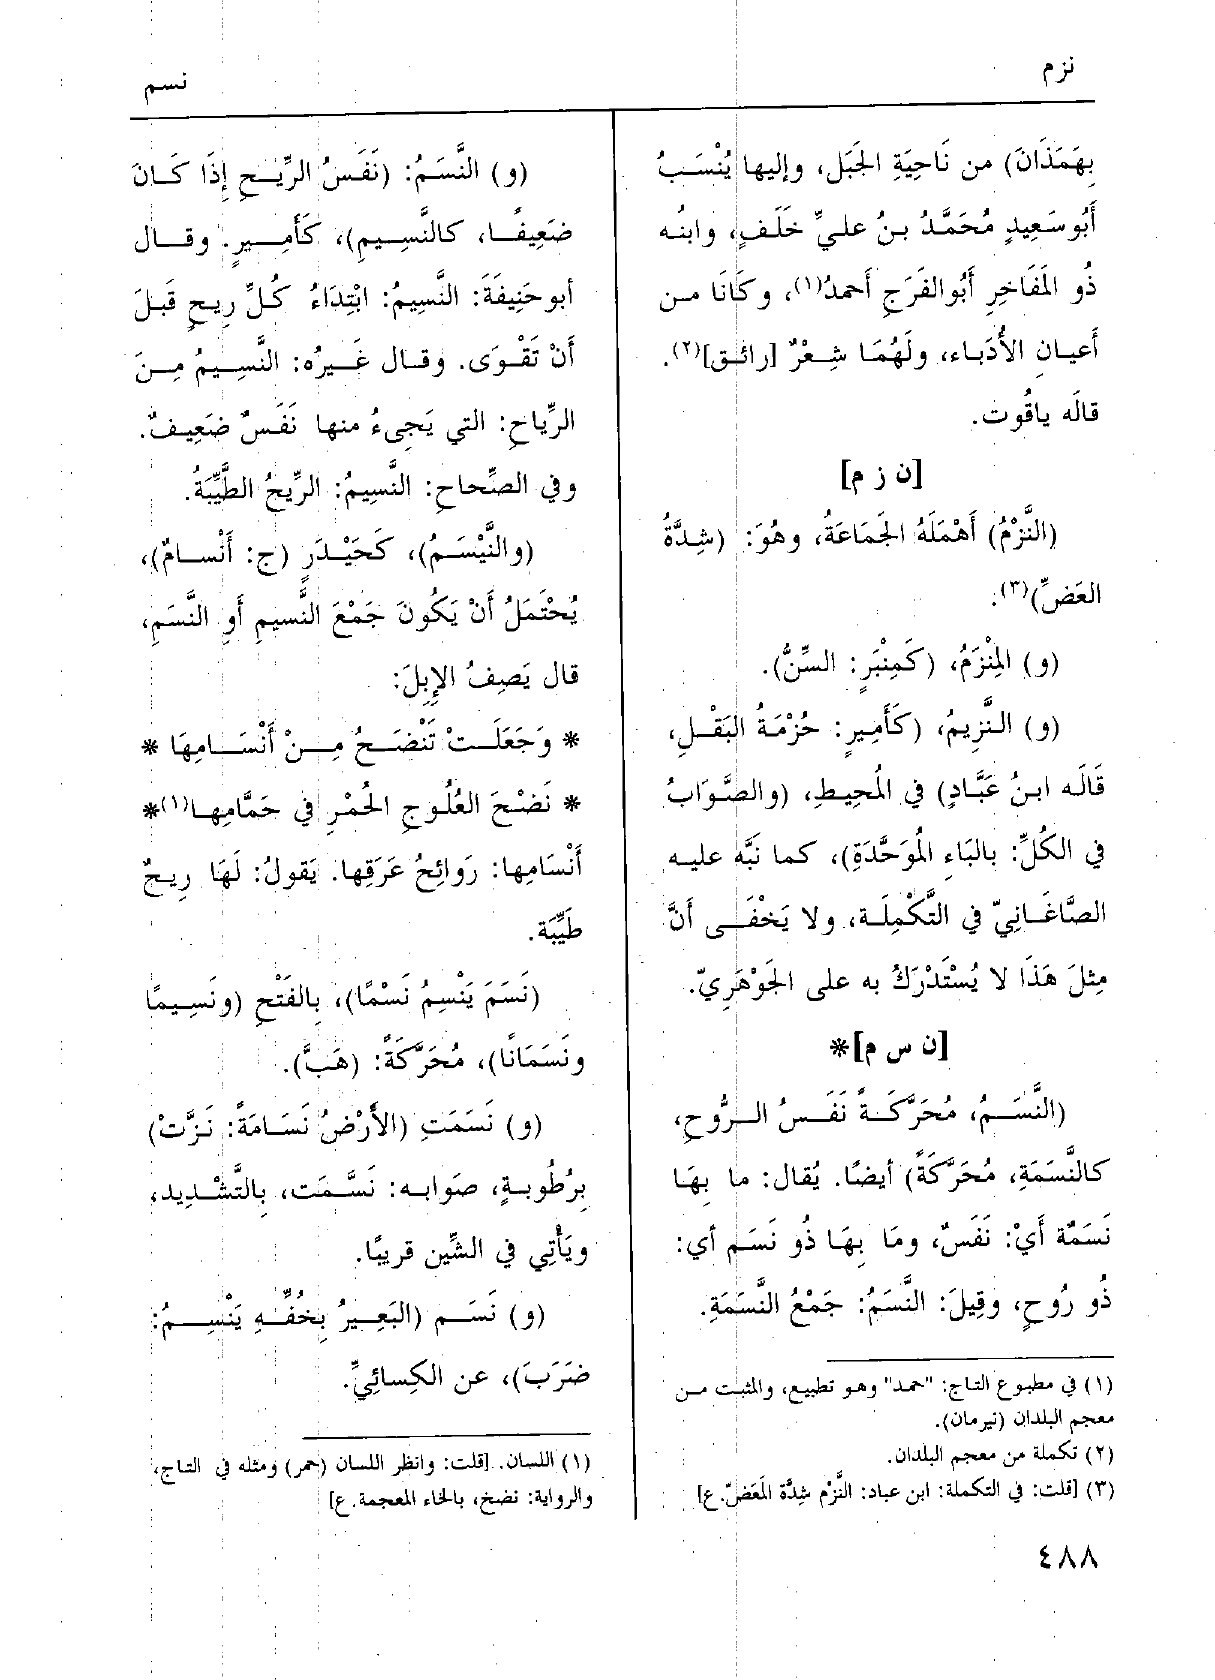 نزم
نسم
بِهَمَذَانَ) من نَاحِيَةِ الجَبَل، وإليها يُنْسَبُ
أَبُوسَعِيدٍ مُحَمَّدُ بنُ عليِّ خَلَفٍ، وابنُه
ذُو المَفَاخِرِ أَبُوالفَرَجِ أَحمدُ(١)، وكَانَا من
أعيانِ الأُدَباء، ولَهُمَا شِعْرٌ [رائق](٢).
قالَه ياقُوت.
[ن ز م]
(النَّزْمُ) أَهْمَلَهُ الجَمَاعَةُ، وهُوَ: (شِدَّةُ
العَضِّ)(٣).
(و) المِنْزَمُ، (كَمِنْبَرٍ: السِّنُّ).
(و) النَّزِيمُ، (كَأَمِيرٍ: حُزْمَةُ البَقْلِ،
قَالَه ابنُ عَبَّادٍ) في المُحِيطِ، (والصَّوَابُ
في الكُلِّ: بالبَاءِ المُوَحَّدَةِ)، كما نَبَّه عليه
الصَّاغَانِيّ في التَّكْمِلَة، ولا يَخْفَى أَنَّ
مِثلَ هَذَا لا يُسْتَدْرَكُ به على الجَوْهَرِيّ.
[ن س م]*
(النَّسَمُ، مُحَرَّكَةً نَفَسُ الرُّوحِ،
كالنَّسَمَةِ، مُحَرَّكَةً) أيضًا. يُقال: ما بِهَا
نَسَمَةٌ أَيْ: نَفَسٌ، ومَا بِهَا ذُو نَسَمٍ أي:
ذُو رُوحٍ، وقِيلَ: النَّسَمُ: جَمْعُ النَّسَمَةِ.
(١) في مطبوع التاج: "حمد" وهو تطبيع، والمثبت من
معجم البلدان (نيرمان).
(٢) تكملة من معجم البلدان.
(٣) [قلت: في التكملة: ابن عباد: النَّزْم شِدَّة المَعَضّ. ع]
(و) النَّسَمُ: (نَفَسُ الرِّيحِ إِذَا كَانَ
ضَعِيفًا، كالنَّسِيمِ)، كَأَمِيرٍ. وقال
أبوحَنِيفَةَ: النَّسِيمُ: ابْتِدَاءُ كُلِّ رِيحٍ قَبلَ
أَنْ تَقْوَى. وقال غَيرُه: النَّسِيمُ مِنَ
الرِّياحِ: التي يَجِيءُ منها نَفَسٌ ضَعِيفٌ.
وفي الصِّحاحِ: النَّسِيمُ: الرِّيحُ الطَّيِّبَةُ.
(والنَّيْسَمُ)، كَحَيْدَرٍ (ج: أَنْسامٌ)،
يُحْتَمَلُ أَنْ يَكُونَ جَمْعَ النَّسِيمِ أَوِ النَّسَمِ،
قال يَصِفُ الإِبِلَ:
* وَجَعَلَتْ تَنْضَحُ مِنْ أَنْسَامِهَا *
* نَضْحَ العُلُوجِ الحُمْرِ في حَمَّامِها(١)*
أَنْسَامِها: رَوائِحُ عَرَقِها. يَقولُ: لَهَا رِيحٌ
طَيِّبَة.
(نَسَمَ يَنْسِمُ نَسْمًا)، بِالفَتْحِ (ونَسِيمًا
ونَسَمَانًا)، مُحَرَّكَةً: (هَبَّ).
(و) نَسَمَتِ (الأَرْضُ نَسَامَةً: نَزَّتْ)
بِرُطُوبةٍ، صَوابه: نَسَّمَت، بِالتَّشْدِيد،
ويَأْتِي في الشِّين قريبًا.
(و) نَسَم (البَعِيرُ بِخُفِّهِ يَنْسِمُ:
ضَرَبَ)، عن الكِسائِيِّ.
(١) اللسان. [قلت: وانظر اللسان (حمر) ومثله في التاج،
والرواية: نضخ، بالخاء المعجمة. ع]
٤٨٨